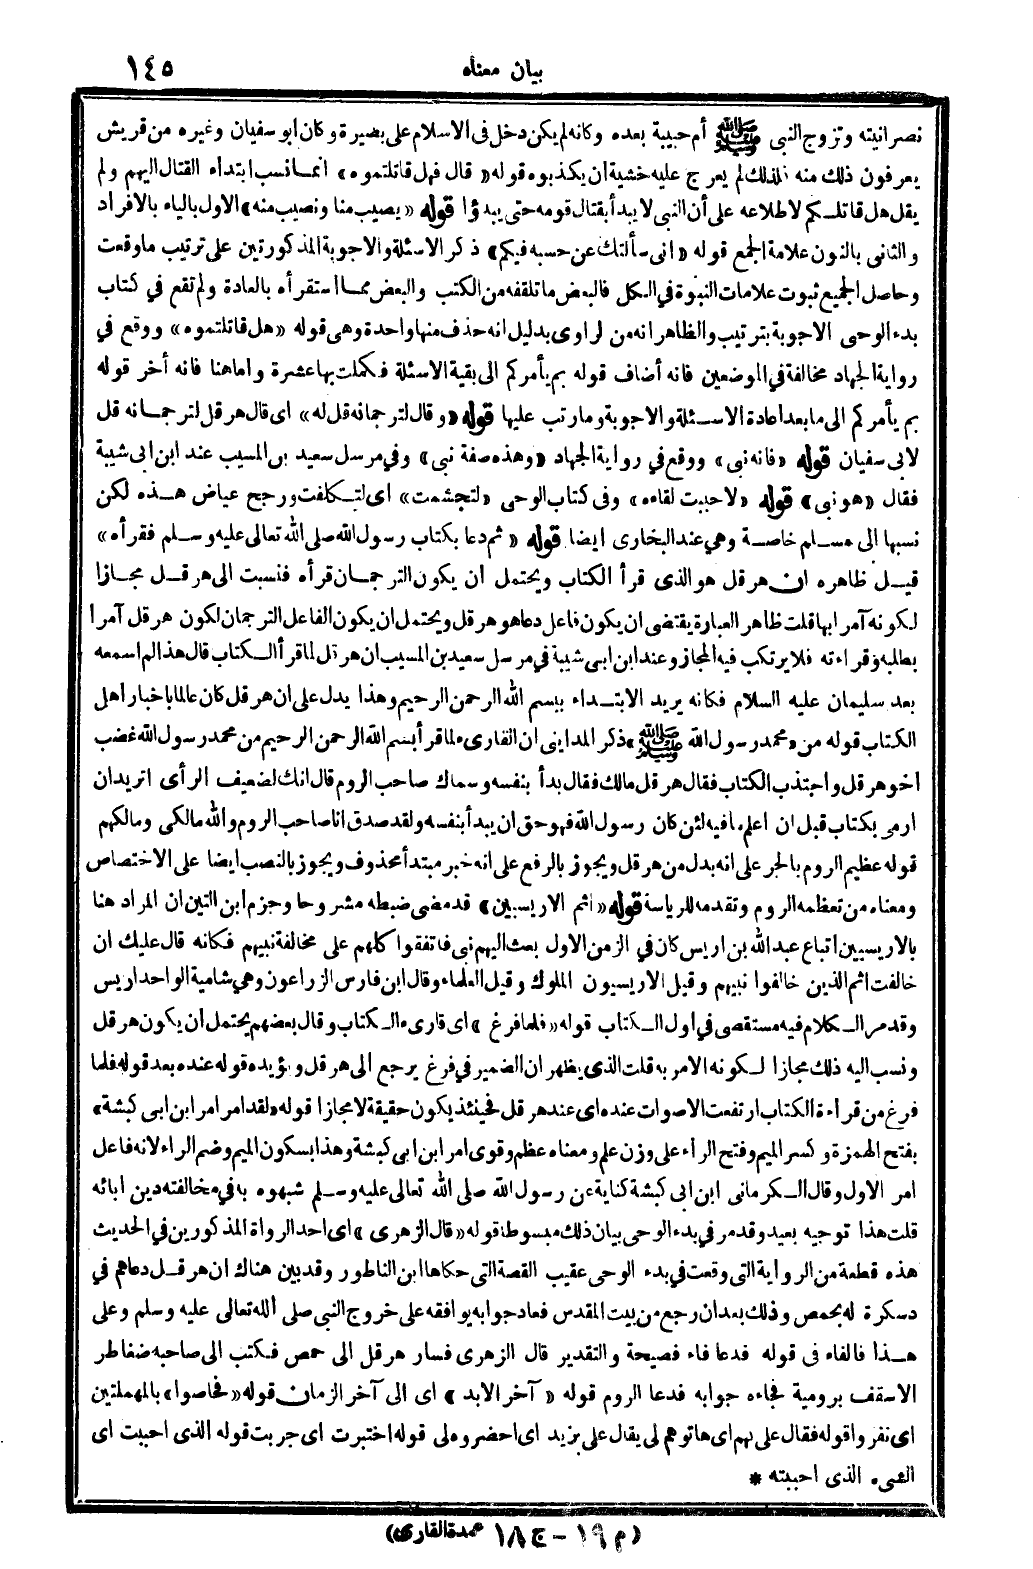 بيان معناه ١٤٥
نصرانيته وتزوج النبي ﷺ أم حبيبة بعده وكانه لم يكن دخل في الاسلام على بصيرة وكان ابو سفيان وغيره من قريش
يعرفون ذلك منه فلذلك لم يعرج عليه خشية ان يكذبوه قوله « قال فهل قاتلتموه » انما نسب ابتداء القتال اليهم ولم
يقل هل قاتلكم لاطلاعه على أن النبي لا يبدأ بقتال قومه حتى يبدؤا قوله « يصيب منا ونصيب منه » الاول بالياء بالافراد
والثاني بالنون علامة الجمع قوله « اني سألتك عن حسبه فيكم » ذكر الاسئلة والاجوبة المذكورتين على ترتيب ما وقعت
وحاصل الجميع ثبوت علامات النبوة في الكل فالبعض ما تلقفه من الكتب والبعض مما استقرأه بالعادة ولم تقع في كتاب
بدء الوحى الاجوبة بترتيب والظاهر انه من لراوى بدليل انه حذف منها واحدة وهى قوله « هل قاتلتموه » ووقع في
رواية الجهاد مخالفة في الموضعين فانه أضاف قوله بم يأمركم الى بقية الاسئلة فكملت بها عشرة واما هنا فانه أخر قوله
بم يأمركم الى ما بعد اعادة الاسئلة والاجوبة وما رتب عليها قوله « وقال لترجمانه قل له » اى قال هرقل لترجمانه قل
لابى سفيان قوله « فانه نبى » ووقع في رواية الجهاد « وهذه صفة نبى » وفي مرسل سعيد بن المسيب عند ابن ابى شيبة
فقال « هو نبى » قوله « لاحببت لقاءه » وفى كتاب الوحى « لتجشمت » اى لتكلفت ورجح عياض هذه لكن
نسبها الى مسلم خاصة وهي عند البخارى ايضا قوله « ثم دعا بكتاب رسول الله صلى الله تعالى عليه وسلم فقرأه »
قيل ظاهره ان هرقل هو الذى قرأ الكتاب ويحتمل ان يكون الترجمان قرأه فنسبت الى هرقل مجازا
لكونه آمرا بها قلت ظاهر العبارة يقتضى ان يكون فاعل دعا هو هرقل ويحتمل ان يكون الفاعل الترجمان لكون هرقل آمرا
بطلبه وقراءته فلا يرتكب فيه المجاز وعند ابن ابى شيبة في مرسل سعيد بن المسيب ان هرقل لما قرأ الكتاب قال هذا لم اسمعه
بعد سليمان عليه السلام فكانه يريد الابتداء ببسم الله الرحمن الرحيم وهذا يدل على ان هرقل كان عالما باخبار اهل
الكتاب قوله من « محمد رسول الله ﷺ » ذكر المدايني ان القارىء لما قرأ بسم الله الرحمن الرحيم من محمد رسول الله غضب
اخو هرقل واجتذب الكتاب فقال هرقل مالك فقال بدأ بنفسه وسماك صاحب الروم قال انك لضعيف الرأى اتريد ان
ارمى بكتاب قبل ان اعلم مافيه لئن كان رسول الله فهو حق ان يبدأ بنفسه ولقد صدق انا صاحب الروم والله مالكى ومالكهم
قوله عظيم الروم بالجر على انه بدل من هرقل ويجوز بالرفع على انه خبر مبتدأ محذوف ويجوز بالنصب ايضا على الاختصاص
ومعناه من تعظمه الروم وتقدمه للرياسة قوله « اثم الاريسيين » قد مضى ضبطه مشروحا وجزم ابن التين ان المراد هنا
بالاريسيين اتباع عبد الله بن اريس كان في الزمن الاول بعث اليهم نبى فاتفقوا كلهم على مخالفة نبيهم فكانه قال عليك ان
خالفت اثم الذين خالفوا نبيهم وقيل الاريسيون الملوك وقيل العلماء وقال ابن فارس الزراعون وهي شامية الواحد اريس
وقد مر الكلام فيه مستقصى في اول الكتاب قوله « فلما فرغ » اى قارىء الكتاب وقال بعضهم يحتمل ان يكون هرقل
ونسب اليه ذلك مجازا لكونه الامر به قلت الذى يظهر ان الضمير في فرغ يرجع الى هرقل ويؤيده قوله عنده بعد قوله فلما
فرغ من قراءة الكتاب ارتفعت الاصوات عنده اى عند هرقل فحينئذ يكون حقيقة لا مجازا قوله « لقد امر امر ابن ابى كبشة »
بفتح الهمزة وكسر الميم وفتح الراء على وزن علم ومعناه عظم وقوى امر ابن ابى كبشة وهذا بسكون الميم وضم الراء لانه فاعل
امر الاول وقال الكرمانى ابن ابى كبشة كناية عن رسول الله صلى الله تعالى عليه وسلم شبهوه به في مخالفته دين ابائه
قلت هذا توجيه بعيد وقد مر في بدء الوحى بيان ذلك مبسوطا قوله « قال الزهرى » اى احد الرواة المذكورين في الحديث
هذه قطعة من الرواية التى وقعت في بدء الوحى عقيب القصة التى حكاها ابن الناطور وقد بين هناك ان هرقل دعاهم في
دسكرة له بحمص وذلك بعد ان رجع من بيت المقدس فعاد جوابه يوافقه على خروج النبي صلى الله تعالى عليه وسلم وعلى
هذا فالفاء فى قوله فدعا فاء فصيحة والتقدير قال الزهرى فسار هرقل الى حمص فكتب الى صاحبه ضغاطر
الاسقف برومية فجاءه جوابه فدعا الروم قوله « آخر الابد » اى الى آخر الزمان قوله « فحاصوا » بالمهملتين
اى نفروا قوله فقال على بهم اى هاتوهم لى يقال على بزيد اى احضروه لى قوله اختبرت اى جربت قوله الذى احببت اى
الشىء الذى احببته *
(م ١٩ – ج ١٨ عمدة القارى)